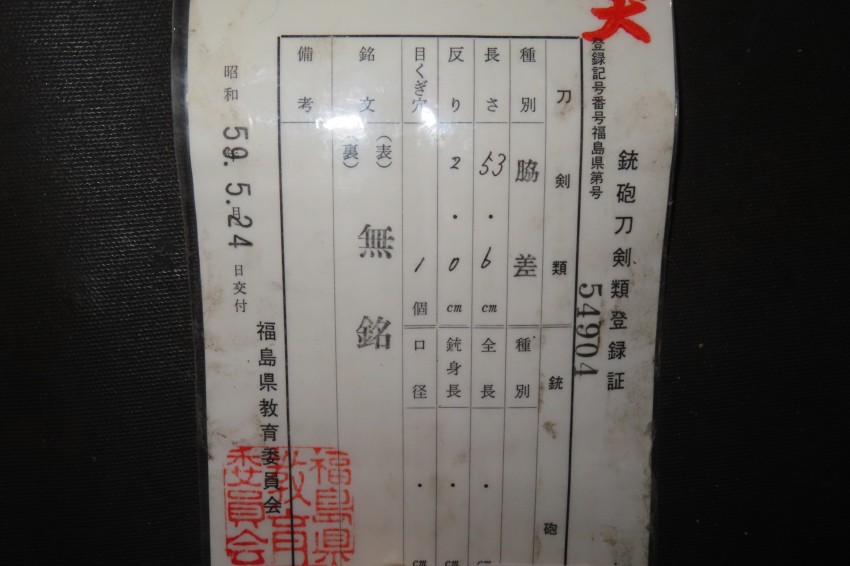 銃砲刀剣類登録証
登録記号番号福島県第号
54904
刀剣類
銃砲
種別
脇差
種別
長さ
53.6cm
全長
. cm
反り
2.0cm
銃身長
. cm
目くぎ穴
1個
口径
. cm
銘文
(表)
(裏)
無銘
備考
昭和59.5.24日交付
福島県教育委員会
福島県
教育
委員会